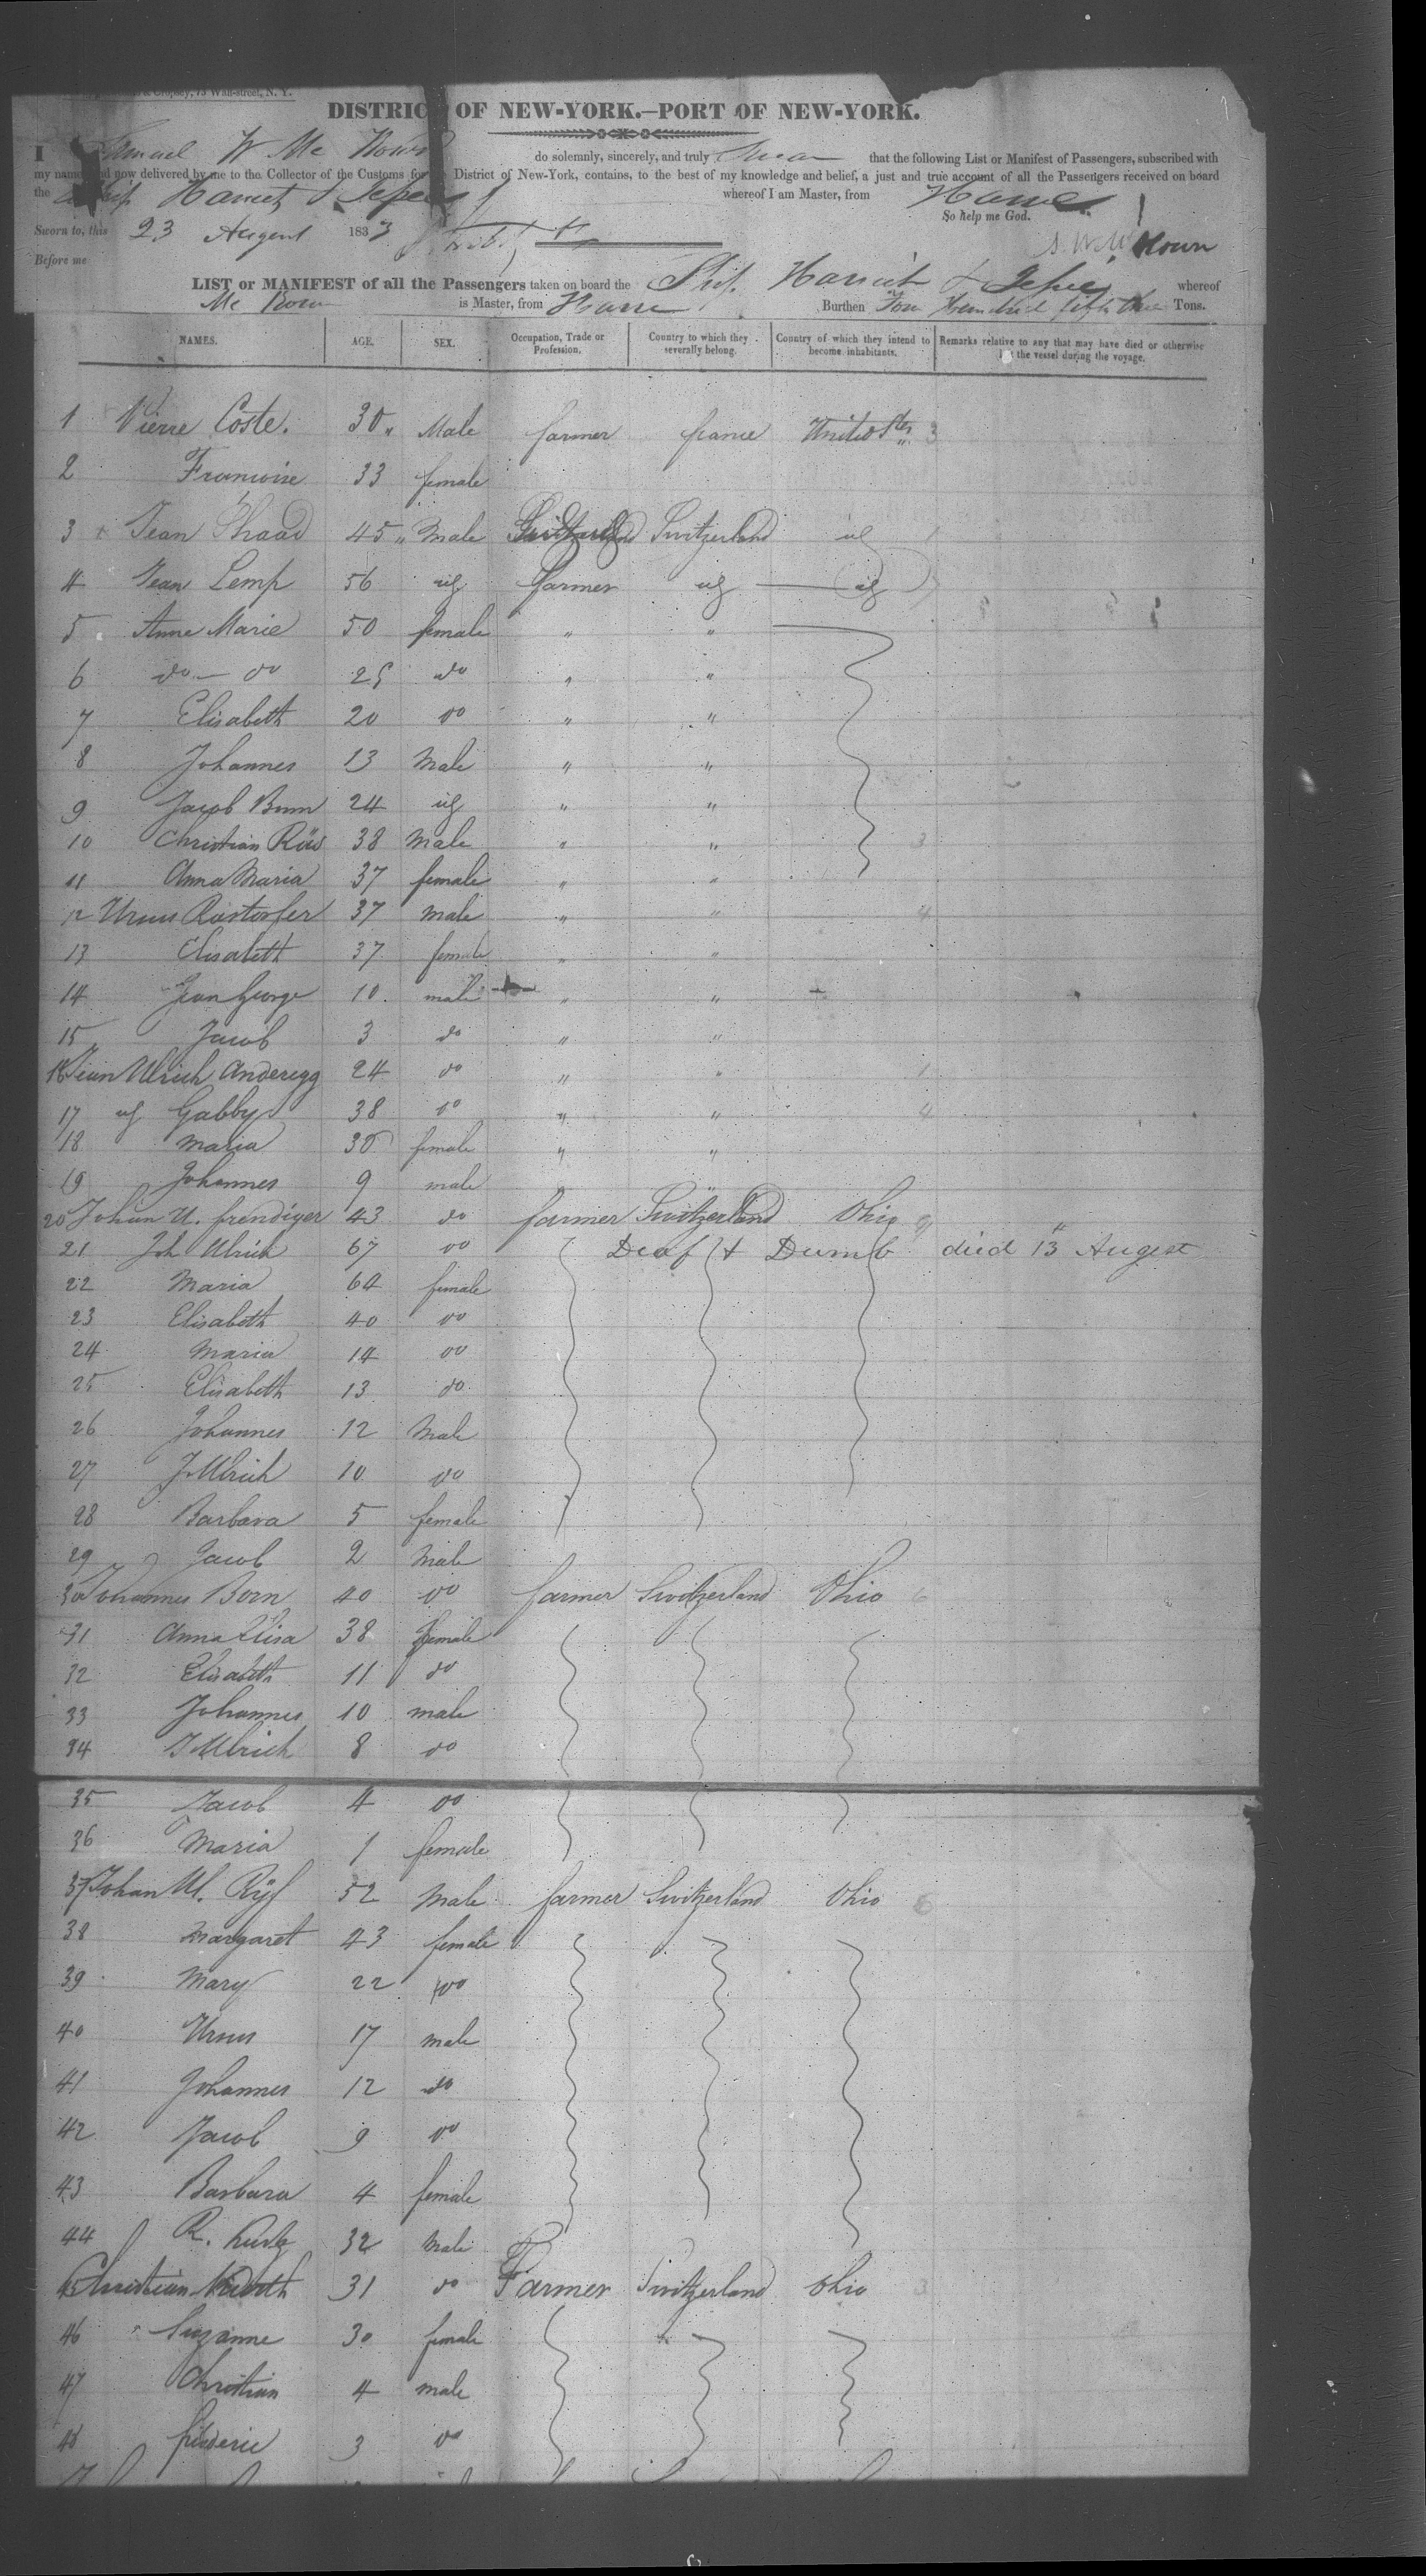 & Cropsey, 75 Wall-street, N. Y.
DISTRICT OF NEW-YORK.—PORT OF NEW-YORK.
I Samuel W Mc Kown do solemnly, sincerely, and truly Swear that the following List or Manifest of Passengers, subscribed with
my name, and now delivered by me to the Collector of the Customs for the District of New-York, contains, to the best of my knowledge and belief, a just and true account of all the Passengers received on board
the Ship Harriet & whereof I am Master, from Havre
So help me God.
Sworn to, this 23 Augest 1833
S. W. Mc Kown
Before me
LIST or MANIFEST of all the Passengers taken on board the Ship Harriet & whereof
Mc Kown is Master, from Havre Burthen Four Hundred fifty three Tons.
NAMES. AGE. SEX. Occupation, Trade or Profession. Country to which they severally belong. Country of which they intend to become inhabitants. Remarks relative to any that may have died or otherwise the vessel during the voyage.
1 Pierre Coste. 30 Male farmer france United Sts 3
2 Francoise 33 female
3 Jean Shaad 45 Male Switzerland Switzerland id 1
4 Jean Lemp 56 id farmer id id
5 Anne Marie 50 female " "
6 do do 25 do " "
7 Elisabeth 20 do " "
8 Johannes 13 Male " "
9 Jacob 24 id " "
10 Christian 38 Male " " 3
11 Anna Maria 37 female " "
12 Ursus 37 male " " 4
13 Elisabeth 37 female " "
14 Jean George 10 male " "
15 Jacob 3 do " "
16 Jean Ulrich Anderegg 24 do " " 1
17 id Gabby 38 do " " 4
18 maria 30 female " "
19 Johannes 9 male " "
20 Johan U. frendiger 43 do farmer Switzerland Ohio 9
21 Joh Ulrich 67 do Deaf & Dumb died 13th Augest
22 Maria 64 female
23 Elisabeth 40 do
24 Maria 14 do
25 Elisabeth 13 do
26 Johannes 12 Male
27 J Ulrich 10 do
28 Barbara 5 female
29 Jacob 2 Male
30 Johannes Born 40 do farmer Switzerland Ohio 6
31 Anna Elisa 38 female
32 Elisabeth 11 do
33 Johannes 10 male
34 J Ulrich 8 do
35 Jacob 4 do
36 Maria 1 female
37 Johan Ul. Ryf 52 Male farmer Switzerland Ohio 6
38 Margaret 43 female
39 Mary 22 do
40 Ursus 17 male
41 Johannes 12 do
42 Jacob 9 do
43 Barbara 4 female
44 R. 32 Male
45 Christian 31 do Farmer Switzerland Ohio 3
46 Suzanne 30 female
47 Christian 4 male
48 frederic 3 do